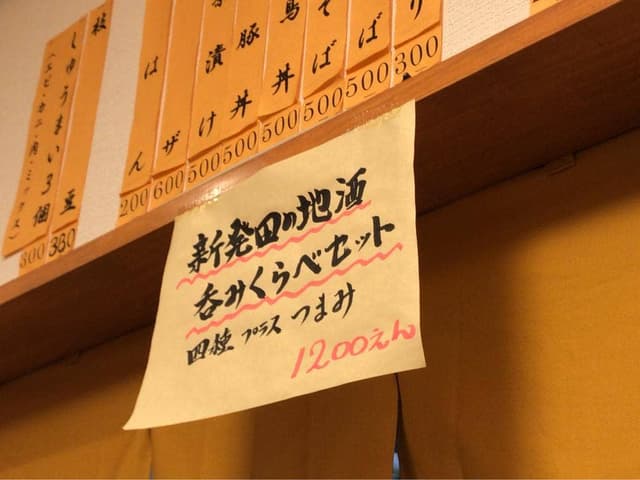 新発田の地酒
呑みくらべセット
四種 プラス つまみ
1200えん
り 300
ば 500
そば 500
鳥丼 500
豚丼 500
漬け 500
ザ 600
はん 200
枝豆 330
しゅうまい3個
(エビ・カニ・肉・ミックス) 300